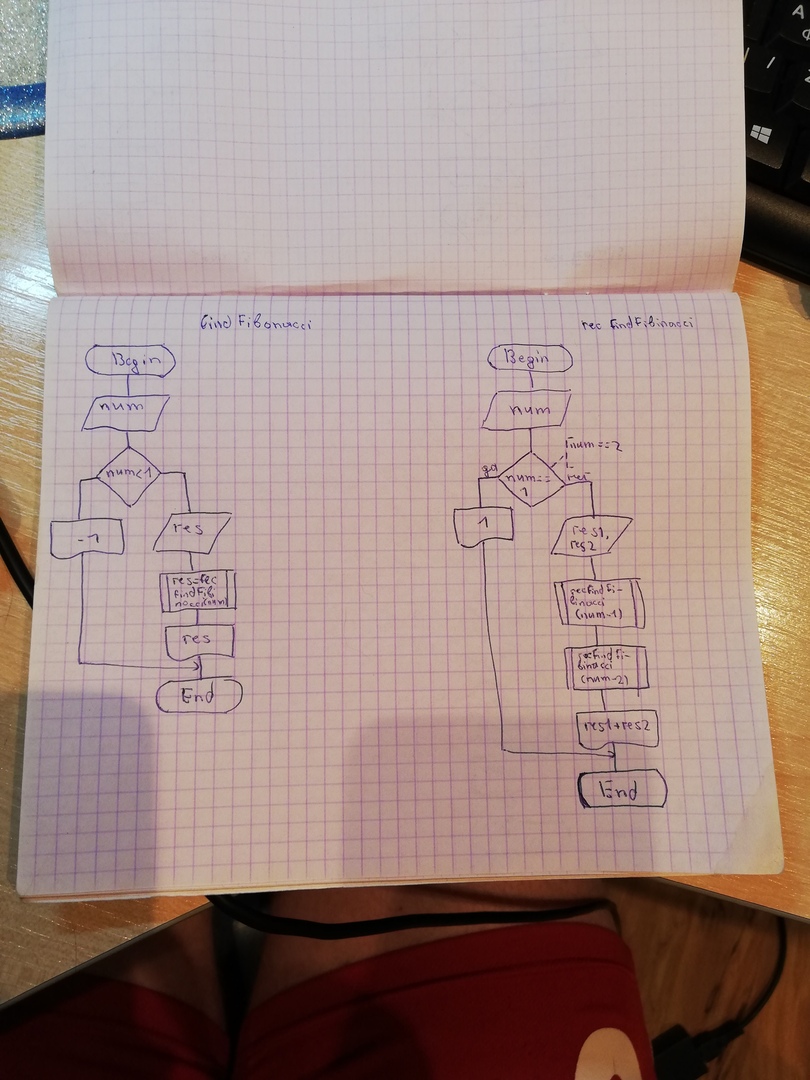 find Fibonacci
Begin
num
num<1
-1
res
res=rec
findFib
nacci(num)
res
End
rec findFibinacci
Begin
num
num==2
num==
1
1
res1,
res2
recfindFi-
binacci
(num-1)
recfindFi-
binacci
(num-2)
res1+res2
End